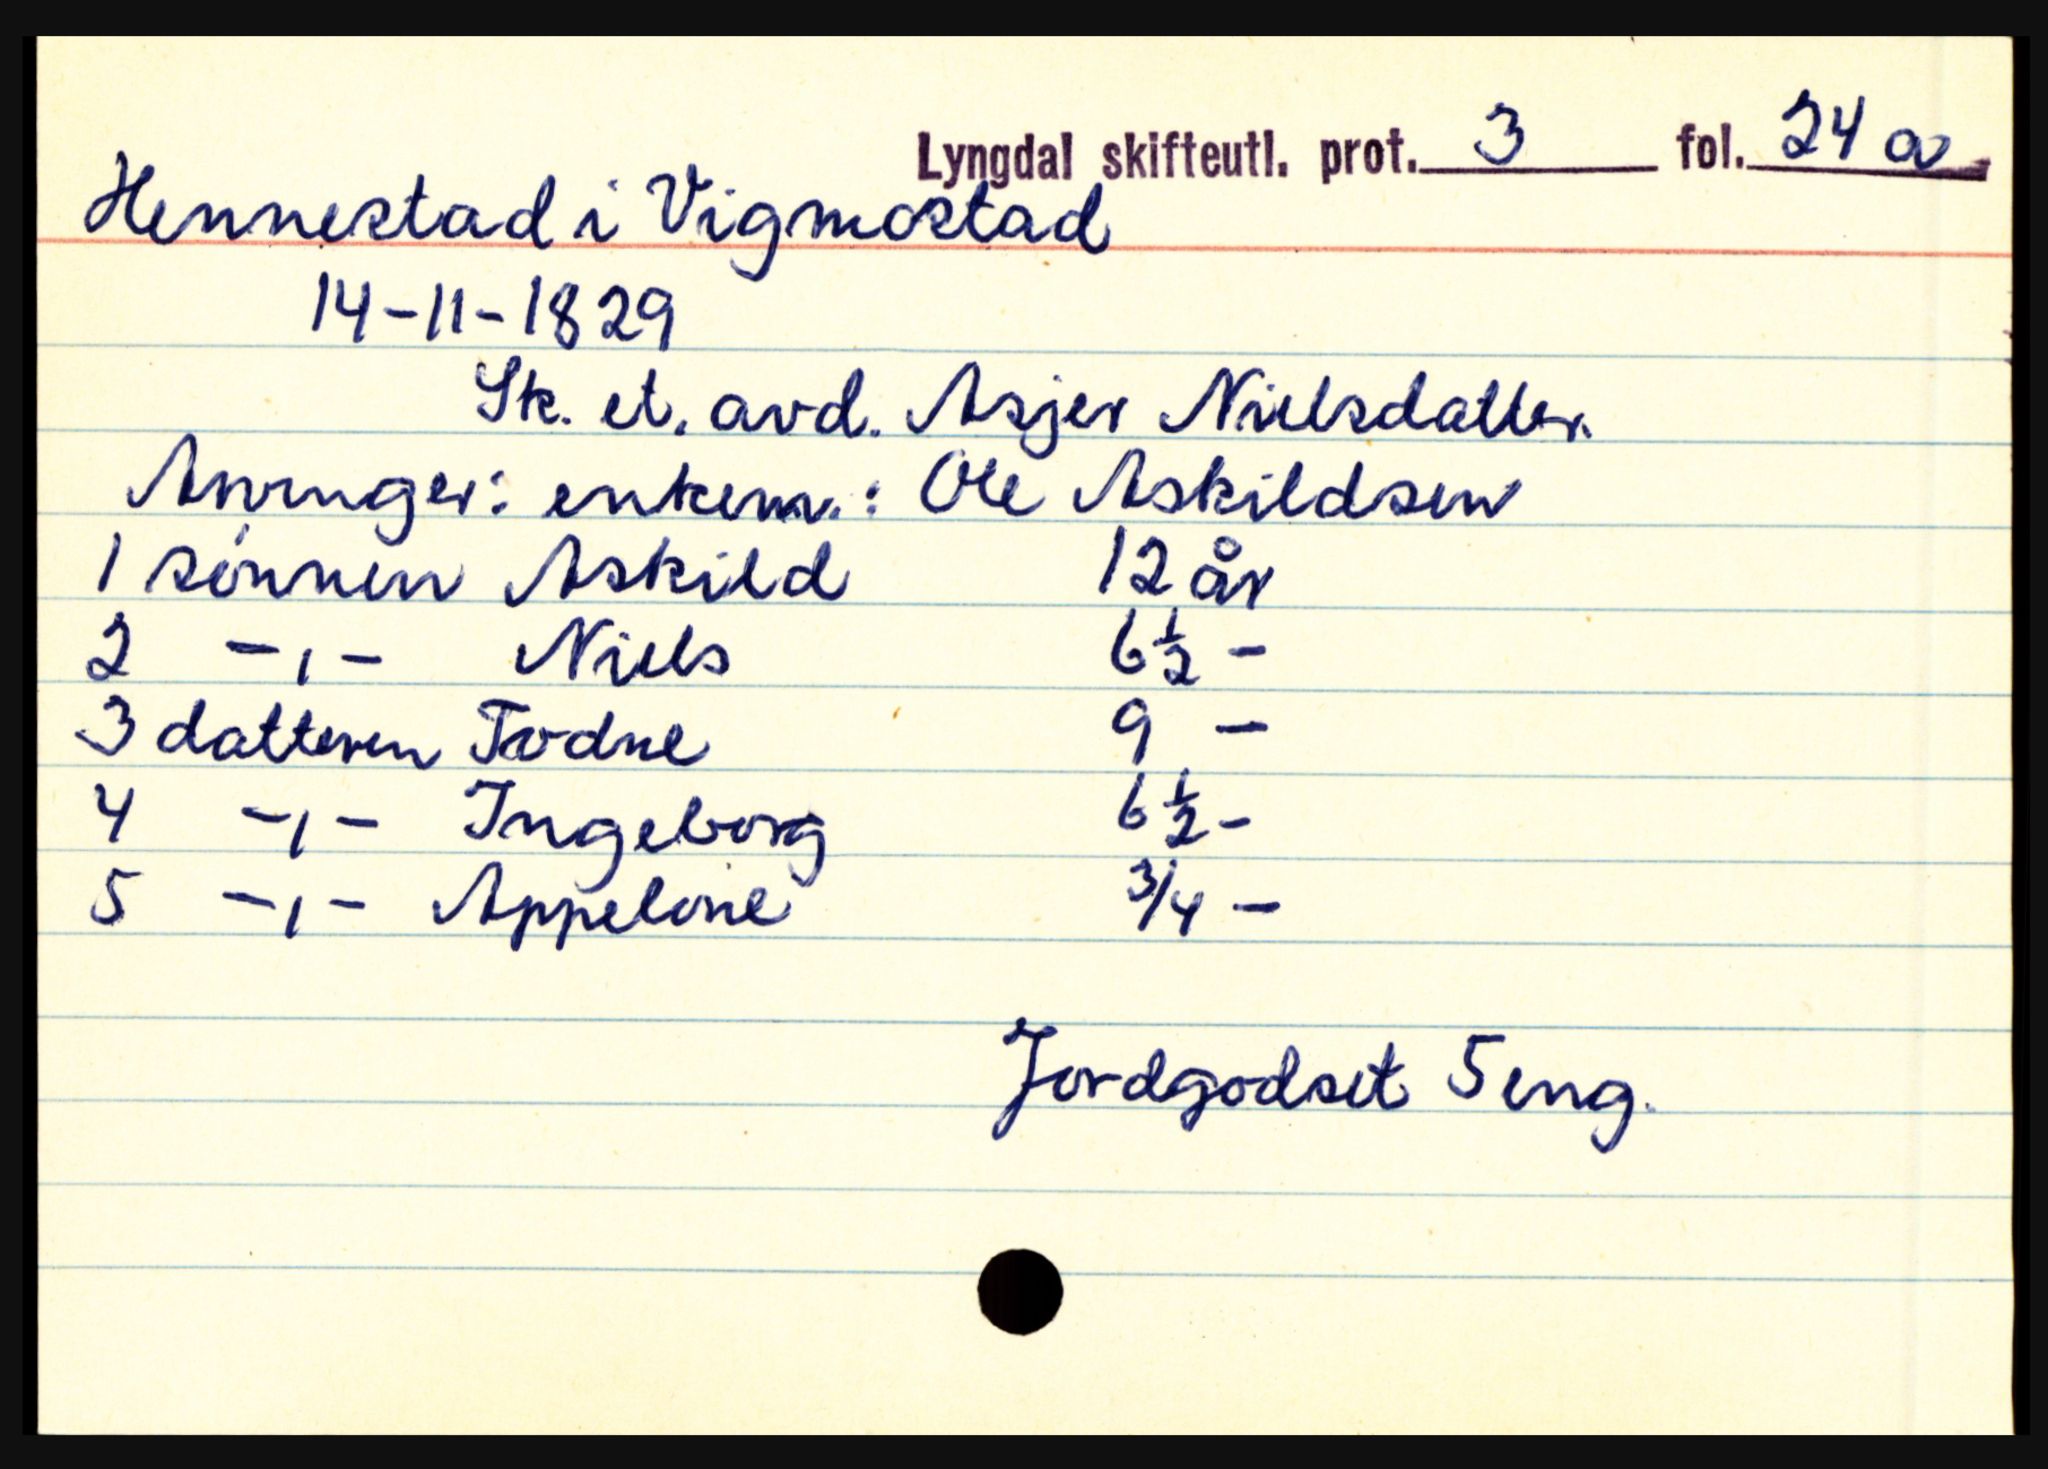 Lyngdal skifteutl. prot. 3 fol. 24 a
Hennestad i Vigmostad
14-11-1829
Sk. et. avd. Asjer Nielsdatter.
Arvinger: enkem.: Ole Askildsen
1 sønnen Askild 12 år
2 -,- Niels 6 1/2 -
3 datteren Todne 9 -
4 -,- Ingeborg 6 1/2 -
5 -,- Appelone 3/4 -
Jordgodset 5 eng.